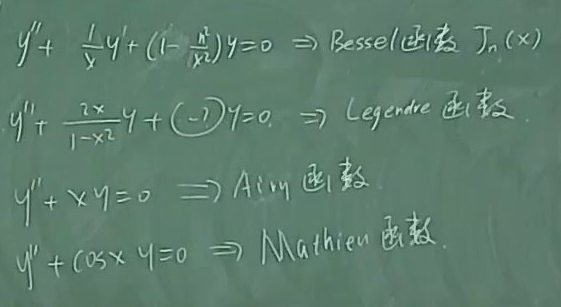 y'' + 1/x y' + (1 - n²/x²) y = 0 ⇒ Bessel函数 Jₙ(x)
y'' + 2x/(1-x²) y + (-?) y = 0. ⇒ Legendre 函数.
y'' + xy = 0 ⇒ Airy 函数.
y'' + cosx y = 0 ⇒ Mathieu 函数.